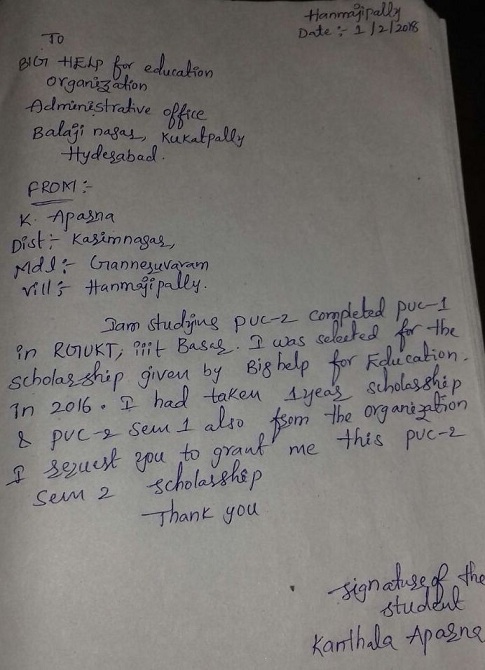 Hanmajipally
Date :- 1/2/2018
TO
BIG HELP for education
organization
Administrative office
Balaji nagar, Kukatpally
Hyderabad.
FROM :-
K. Aparna
Dist :- Karimnagar,
Mdl :- Ganneruvaram
Vill :- Hanmajipally.
Iam studying PUC-2 completed PUC-1
in RGUKT, iiit Basar. I was selected for the
scholarship given by Bighelp for Education.
In 2016. I had taken 1year scholarship
& PUC-2 sem 1 also from the organization
I request you to grant me this PUC-2
Sem 2 scholarship
Thank you
signature of the
student
Kanthala Aparna